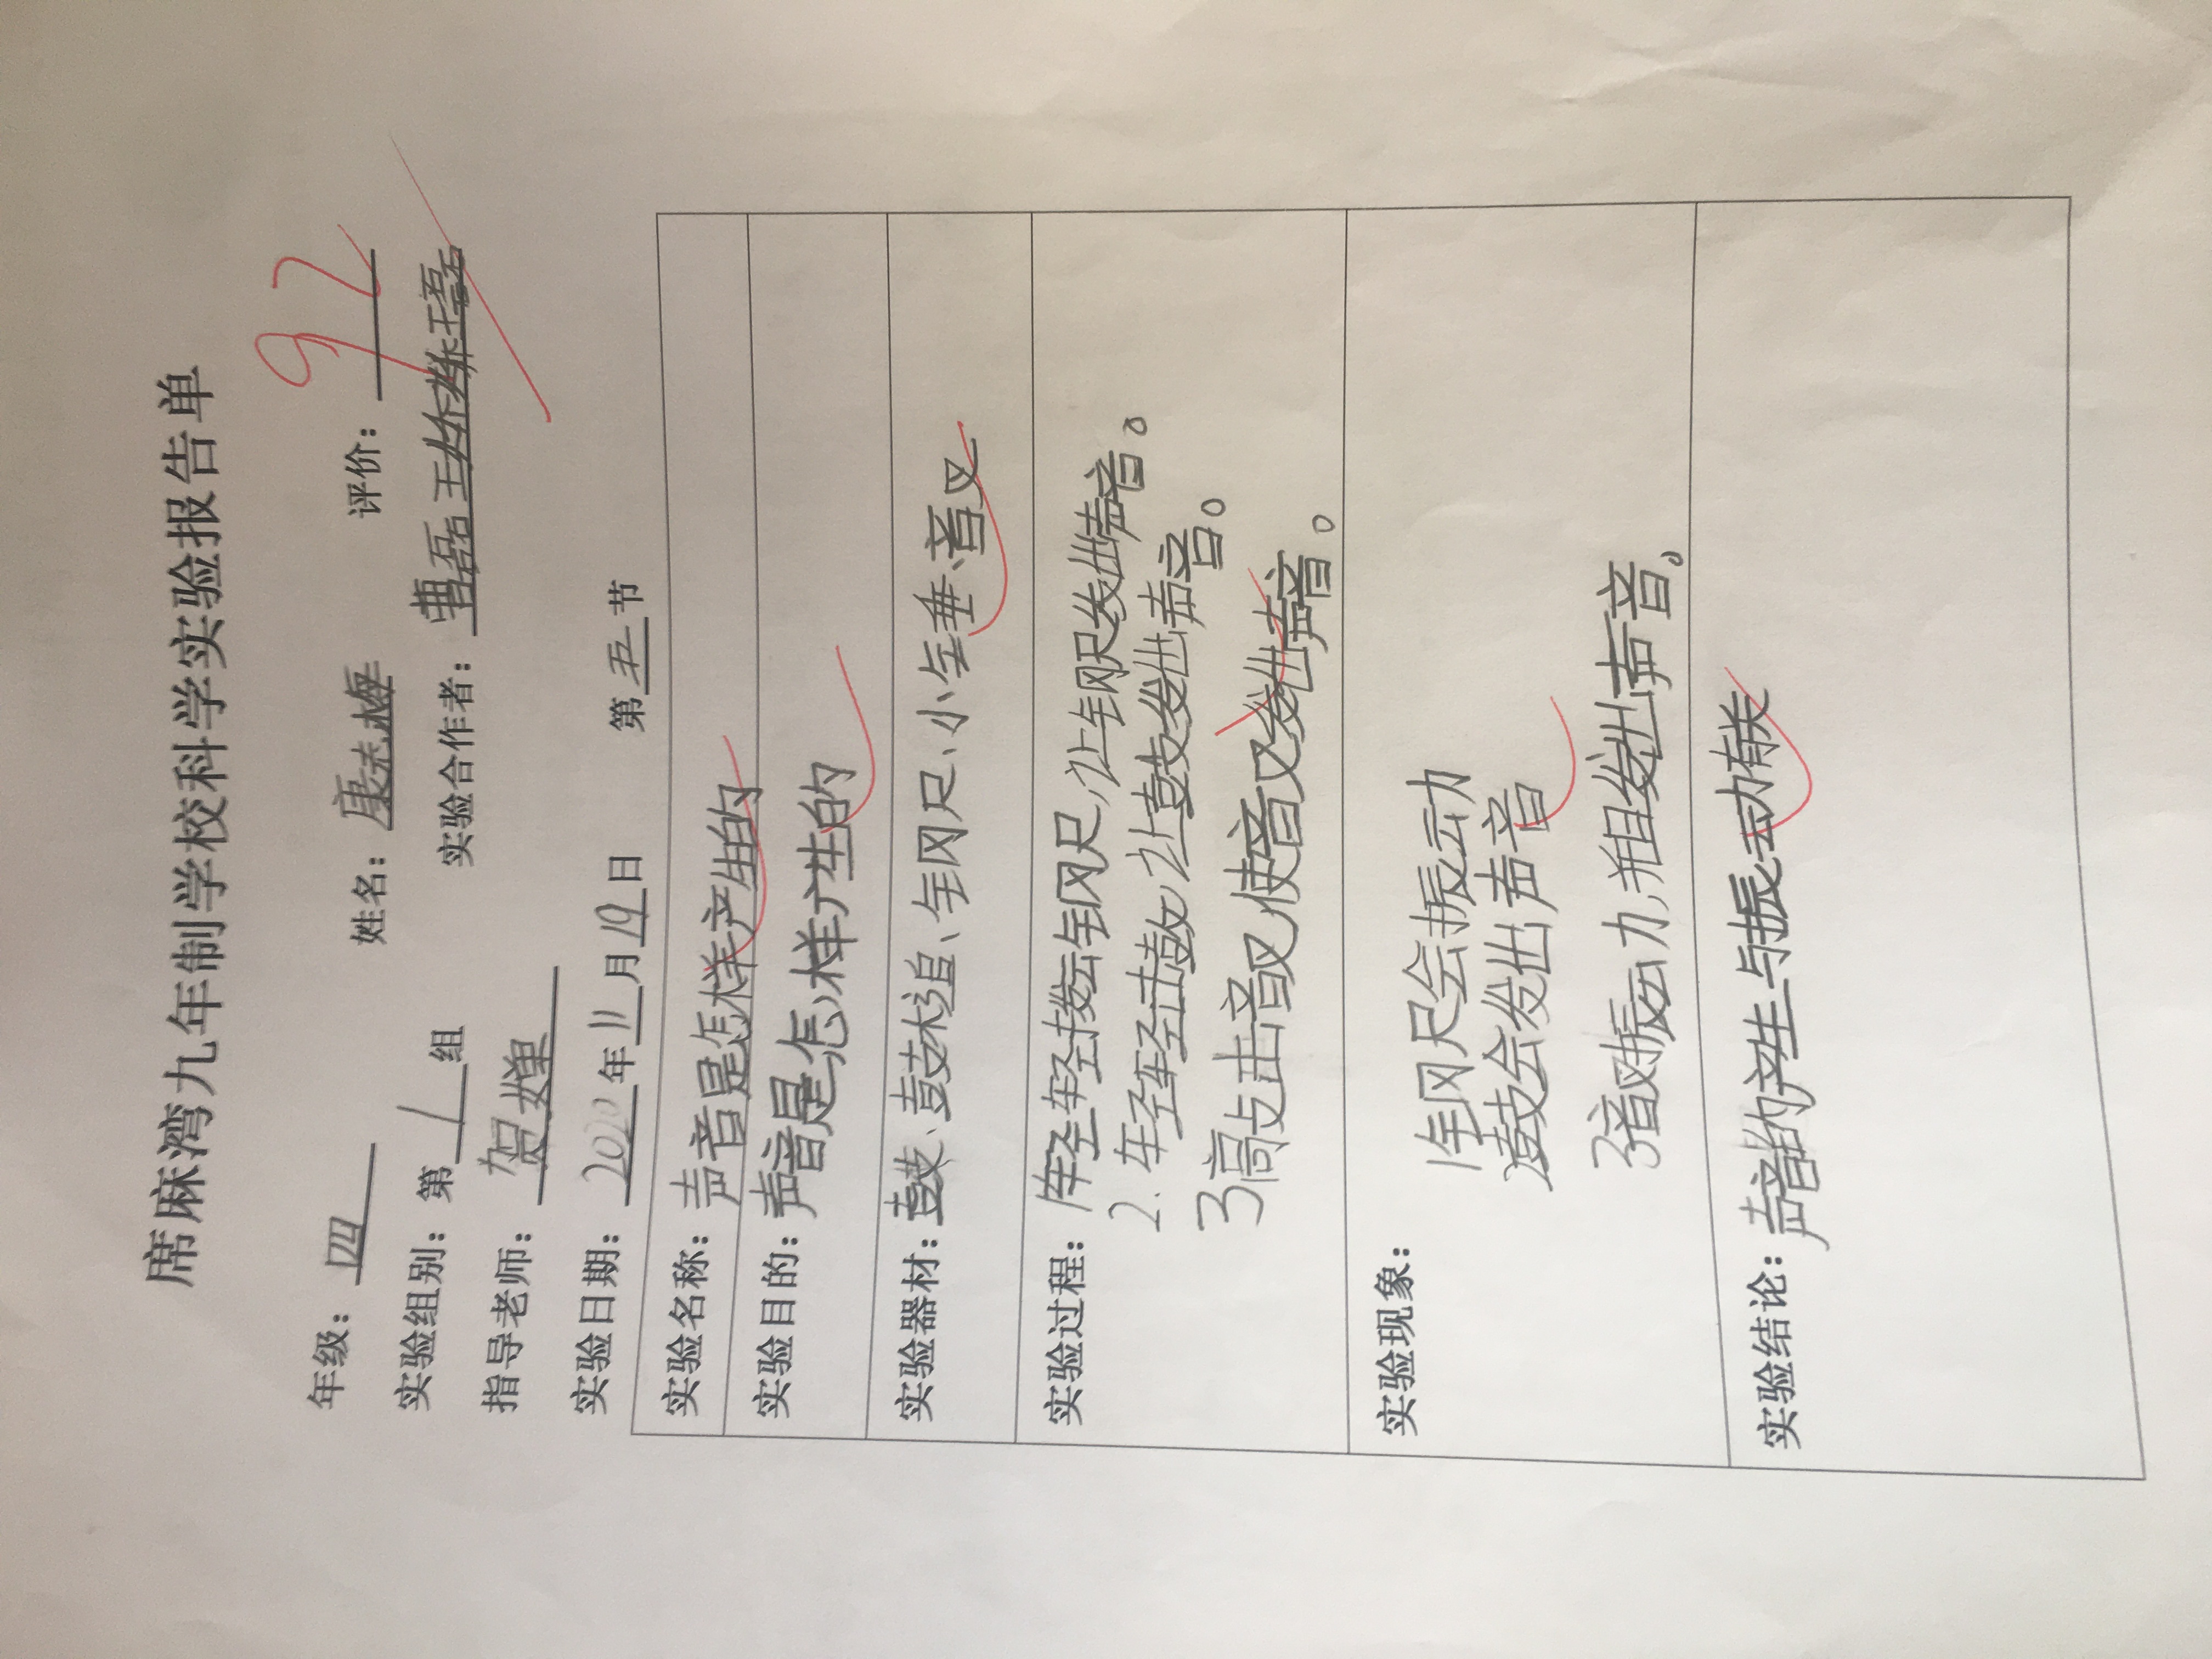 席麻湾九年制学校科学实验报告单
年级：四 姓名：康志梅 评价：92
实验组别：第1组 实验合作者：曹磊 王
指导老师：贺婵
实验日期：2020年11月19日 第五节
实验名称：声音是怎样产生的
实验目的：声音是怎样产生的
实验器材：鼓、鼓槌、钢尺、小锤、音叉
实验过程：1轻轻拨动钢尺，让钢尺发出声音。
2.轻轻击鼓，让鼓发出声音。
3敲击音叉，使音叉发出声音。
实验现象：
1钢尺会振动
2鼓会发出声音
3音叉振动，并且发出声音。
实验结论：声音的产生与振动有关